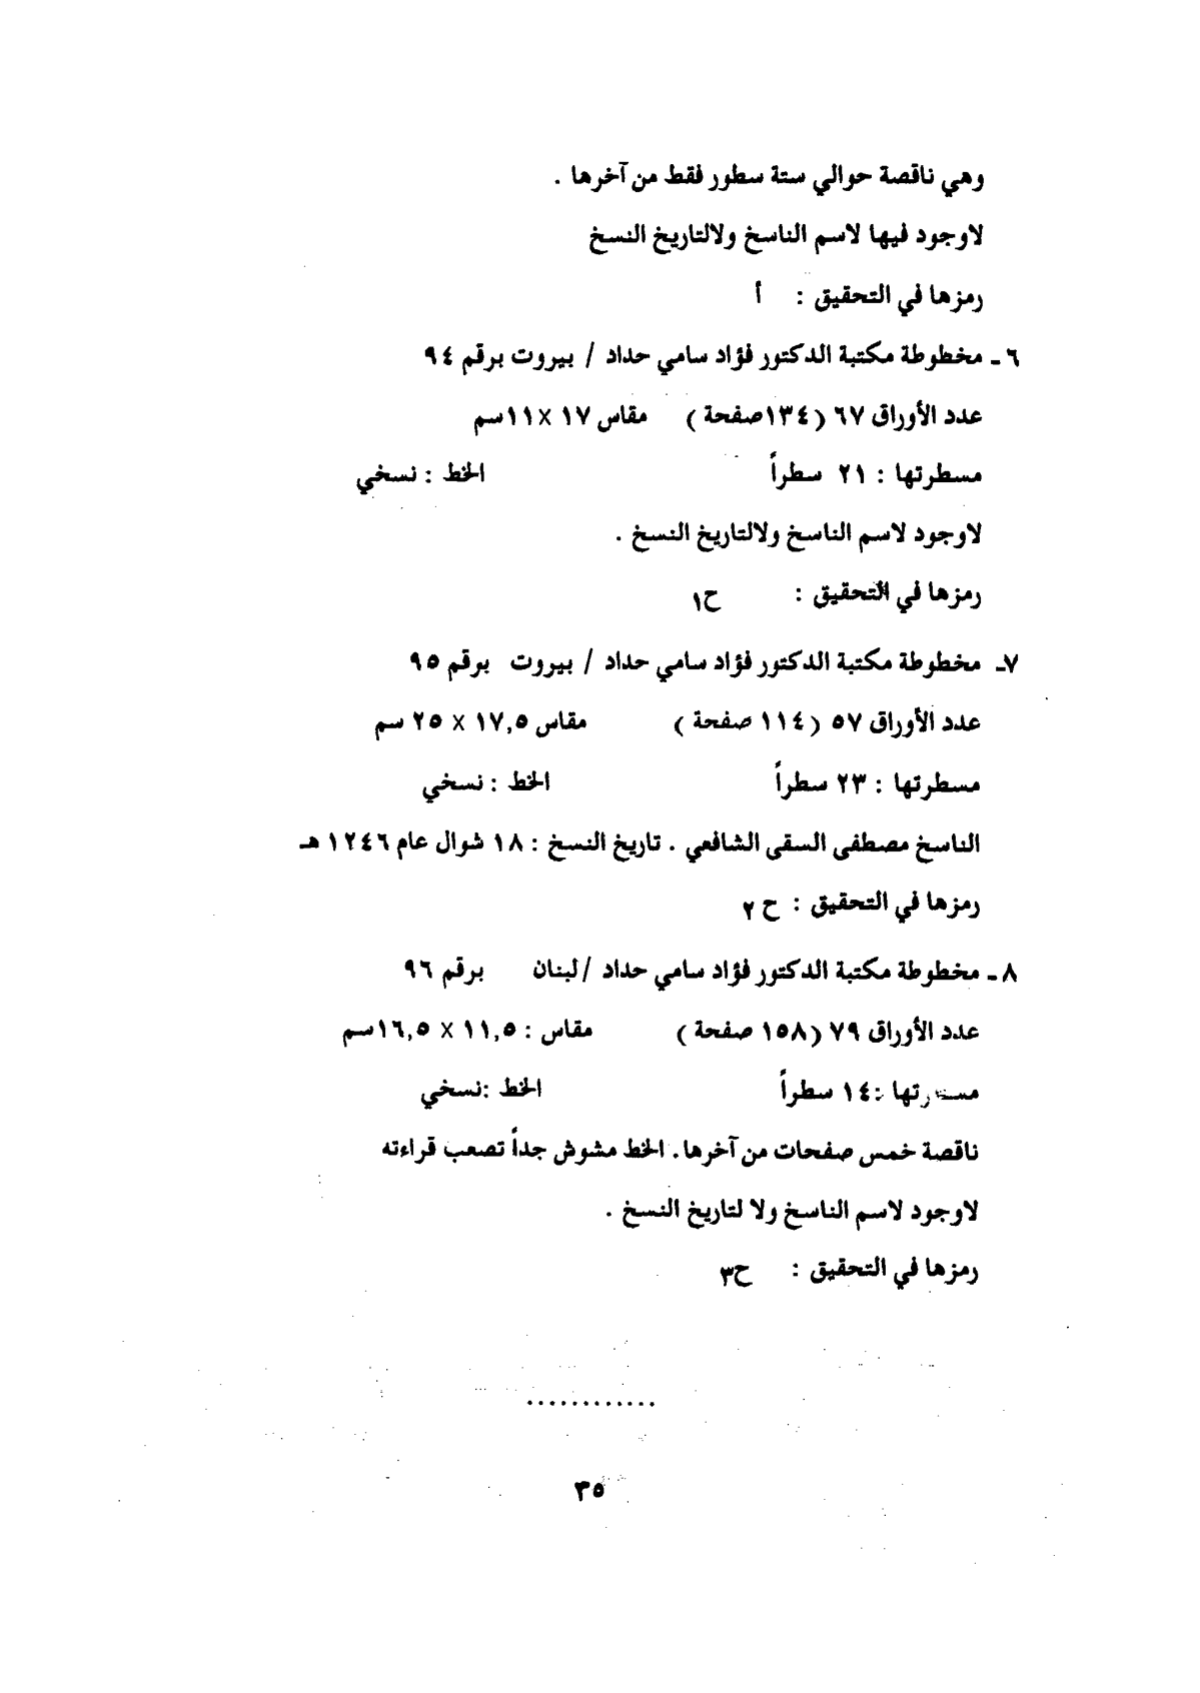 وهي ناقصة حوالي ستة سطور فقط من آخرها .
لاوجود فيها لاسم الناسخ ولالتاريخ النسخ
رمزها في التحقيق : أ
٦ ـ مخطوطة مكتبة الدكتور فؤاد سامي حداد / بيروت برقم ٩٤
عدد الأوراق ٦٧ (١٣٤صفحة ) مقاس ١٧ ×١١سم
مسطرتها : ٢١ سطراً الخط : نسخي
لاوجود لاسم الناسخ ولالتاريخ النسخ .
رمزها في التحقيق : ح١
٧ـ مخطوطة مكتبة الدكتور فؤاد سامي حداد / بيروت برقم ٩٥
عدد الأوراق ٥٧ (١١٤ صفحة ) مقاس ١٧,٥ × ٢٥ سم
مسطرتها : ٢٣ سطراً الخط : نسخي
الناسخ مصطفى السقى الشافعي . تاريخ النسخ : ١٨ شوال عام ١٢٤٦ هـ
رمزها في التحقيق : ح ٢
٨ ـ مخطوطة مكتبة الدكتور فؤاد سامي حداد /لبنان برقم ٩٦
عدد الأوراق ٧٩ (١٥٨ صفحة ) مقاس : ١١,٥ × ١٦,٥سم
مسطرتها :١٤ سطراً الخط :نسخي
ناقصة خمس صفحات من آخرها. الخط مشوش جداً تصعب قراءته
لاوجود لاسم الناسخ ولا لتاريخ النسخ .
رمزها في التحقيق : ح٣
............
٣٥